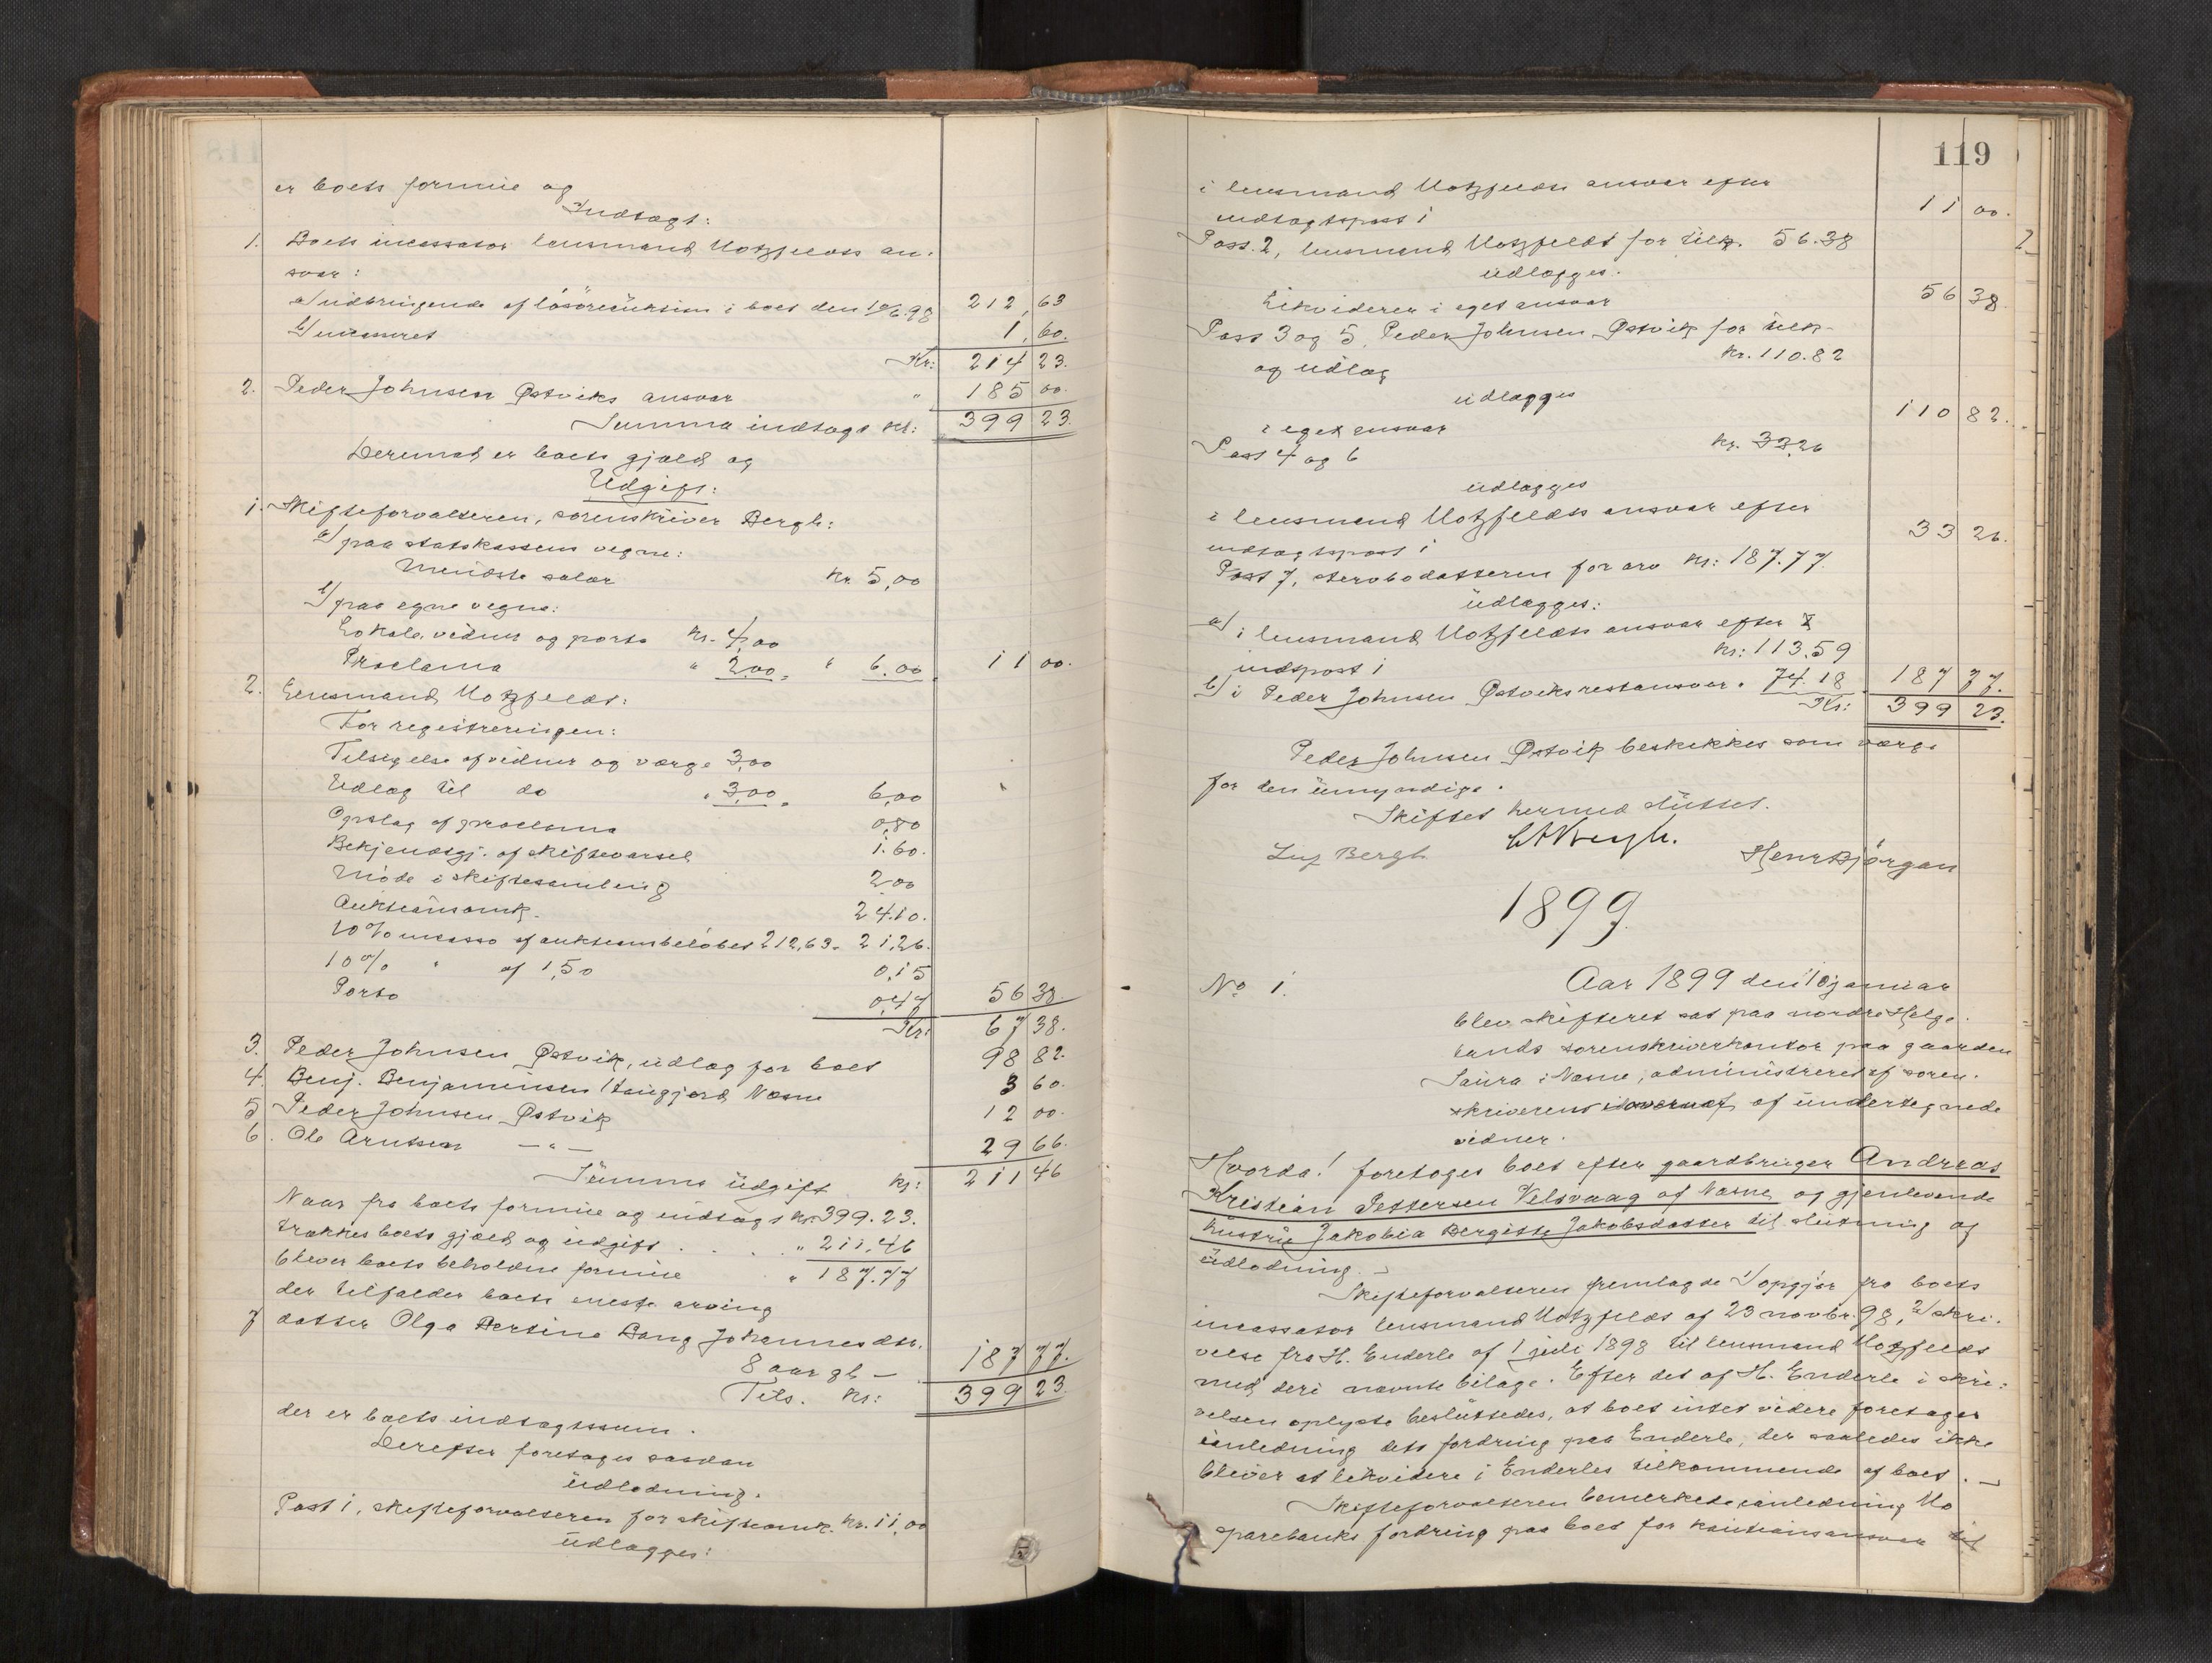 er boets formue og
Indtægt:
1. Boets incassator lensmand Motzfeldts an-
svar:
a) udbringende af løsøreauktion i boet den 10/6 98 212,63
b) 1,60.
Kr: 214 23.
2. Peder Johnsen Østviks ansvar " 185 00.
Summa indtægt kr: 399 23.
Derimod er boets gjæld og
Udgift:
1. Skifteforvalteren, sorenskriver Bergh:
a) paa statskassens vegne:
Mindste salær kr 5,00
b) paa egne vegne:
Lokale, vidner og porto kr. 4,00
Proclama " 2,00 " 6.00 11 00.
2. Lensmand Motzfeldt:
For registreringen:
Tilsigelse af vidner og værge 3,00
Udlæg til do " 3,00 6,00
Opslag af proclama 0,80
Bekjendtgj. af skiftevarsel 1.60.
Møde i skiftesamling 2,00
Auktionsomk. 24.10.
10% incasso af auktionsbeløbet 212,63. 21,26.
10% " af 1,50 0,15
Porto 0,47 56 38.
Kr: 67 38.
3. Peder Johnsen Østvik, udlæg for boet 98 82.
4. Benj. Benjaminsen Langjord Næsne 3 60.
5 Peder Johnsen Østvik 12 00.
6. Ole Arntsen —"— 29 66.
Summa udgift kr: 211 46
Naar fra boets formue og indtægt kr. 399.23.
trækkes boets gjæld og udgift . . . " 211,46
bliver boets beholdne formue " 187.77
der tilfalder boets eneste arving
7 datter Olga Bertine Dang Johannesdtr.
8 aar gl — 187 77.
Tils. kr: 399 23.
der er boets indtægtssum.
Derefter foretoges saadan
udlodning.
Post 1, skifteforvalteren for skifteomk. kr. 11,00
udlægges:
119
i lensmand Motzfeldts ansvar efter
indtægtspost 1 11 00.
Post. 2, lensmand Motzfeldt for tilk. 56.38
udlægges.
Likviderer i eget ansvar 56 38.
Post 3 og 5, Peder Johnsen Østvik for tilk.
og udlæg kr. 110.82
udlægges
i eget ansvar 110 82.
Post 4 og 6 kr. 33,26
udlægges
i lensmand Motzfeldts ansvar efter
indtægtspost 1 33 26.
Post 7, stervbodatteren for arv kr: 187.77.
udlægges:
a) i lensmand Motzfeldts ansvar efter
indtpost 1 kr: 113.59
b) i Peder Johnsen Østviks restansvar " 74.18 187 77.
Kr: 399 23.
Peder Johnsen Østvik beskikkes som værge
for den umyndige.
Skiftet hermed sluttet.
Bergh.
Bergh Henr Bjørgan
1899.
No 1. Aar 1899 den 10 januar
blev skifteret sat paa nordre Helge-
lands sorenskriverkontor paa gaarden
Saura i Næsne, administreret af soren-
skriveren i overvær af undertegnede
vidner.
Hvorda! foretoges boet efter gaardbruger Andreas
Kristian Pettersen Velsvaag af Næsne og gjenlevende
hustru Jakobia Bergitte Jakobsdatter til slutning og
udlodning. —
Skifteforvalteren fremlagde 1) opgjør fra boets
incassator lensmand Motzfeldt af 23 novbr. 98, 2) skri-
velse fra H. Enderle af 1 juli 1898 til lensmand Motzfeldt
med deri nævnte bilage. Efter det af H. Enderle i skri-
velsen oplyste besluttedes, at boet intet videre foretager
i anledning dets fordring paa Enderle, der saaledes ikke
bliver at likvidere i Enderles tilkommende af boet. —
Skifteforvalteren bemerkede i anledning Mo
sparebanks fordring paa boet for kautionsansvar til